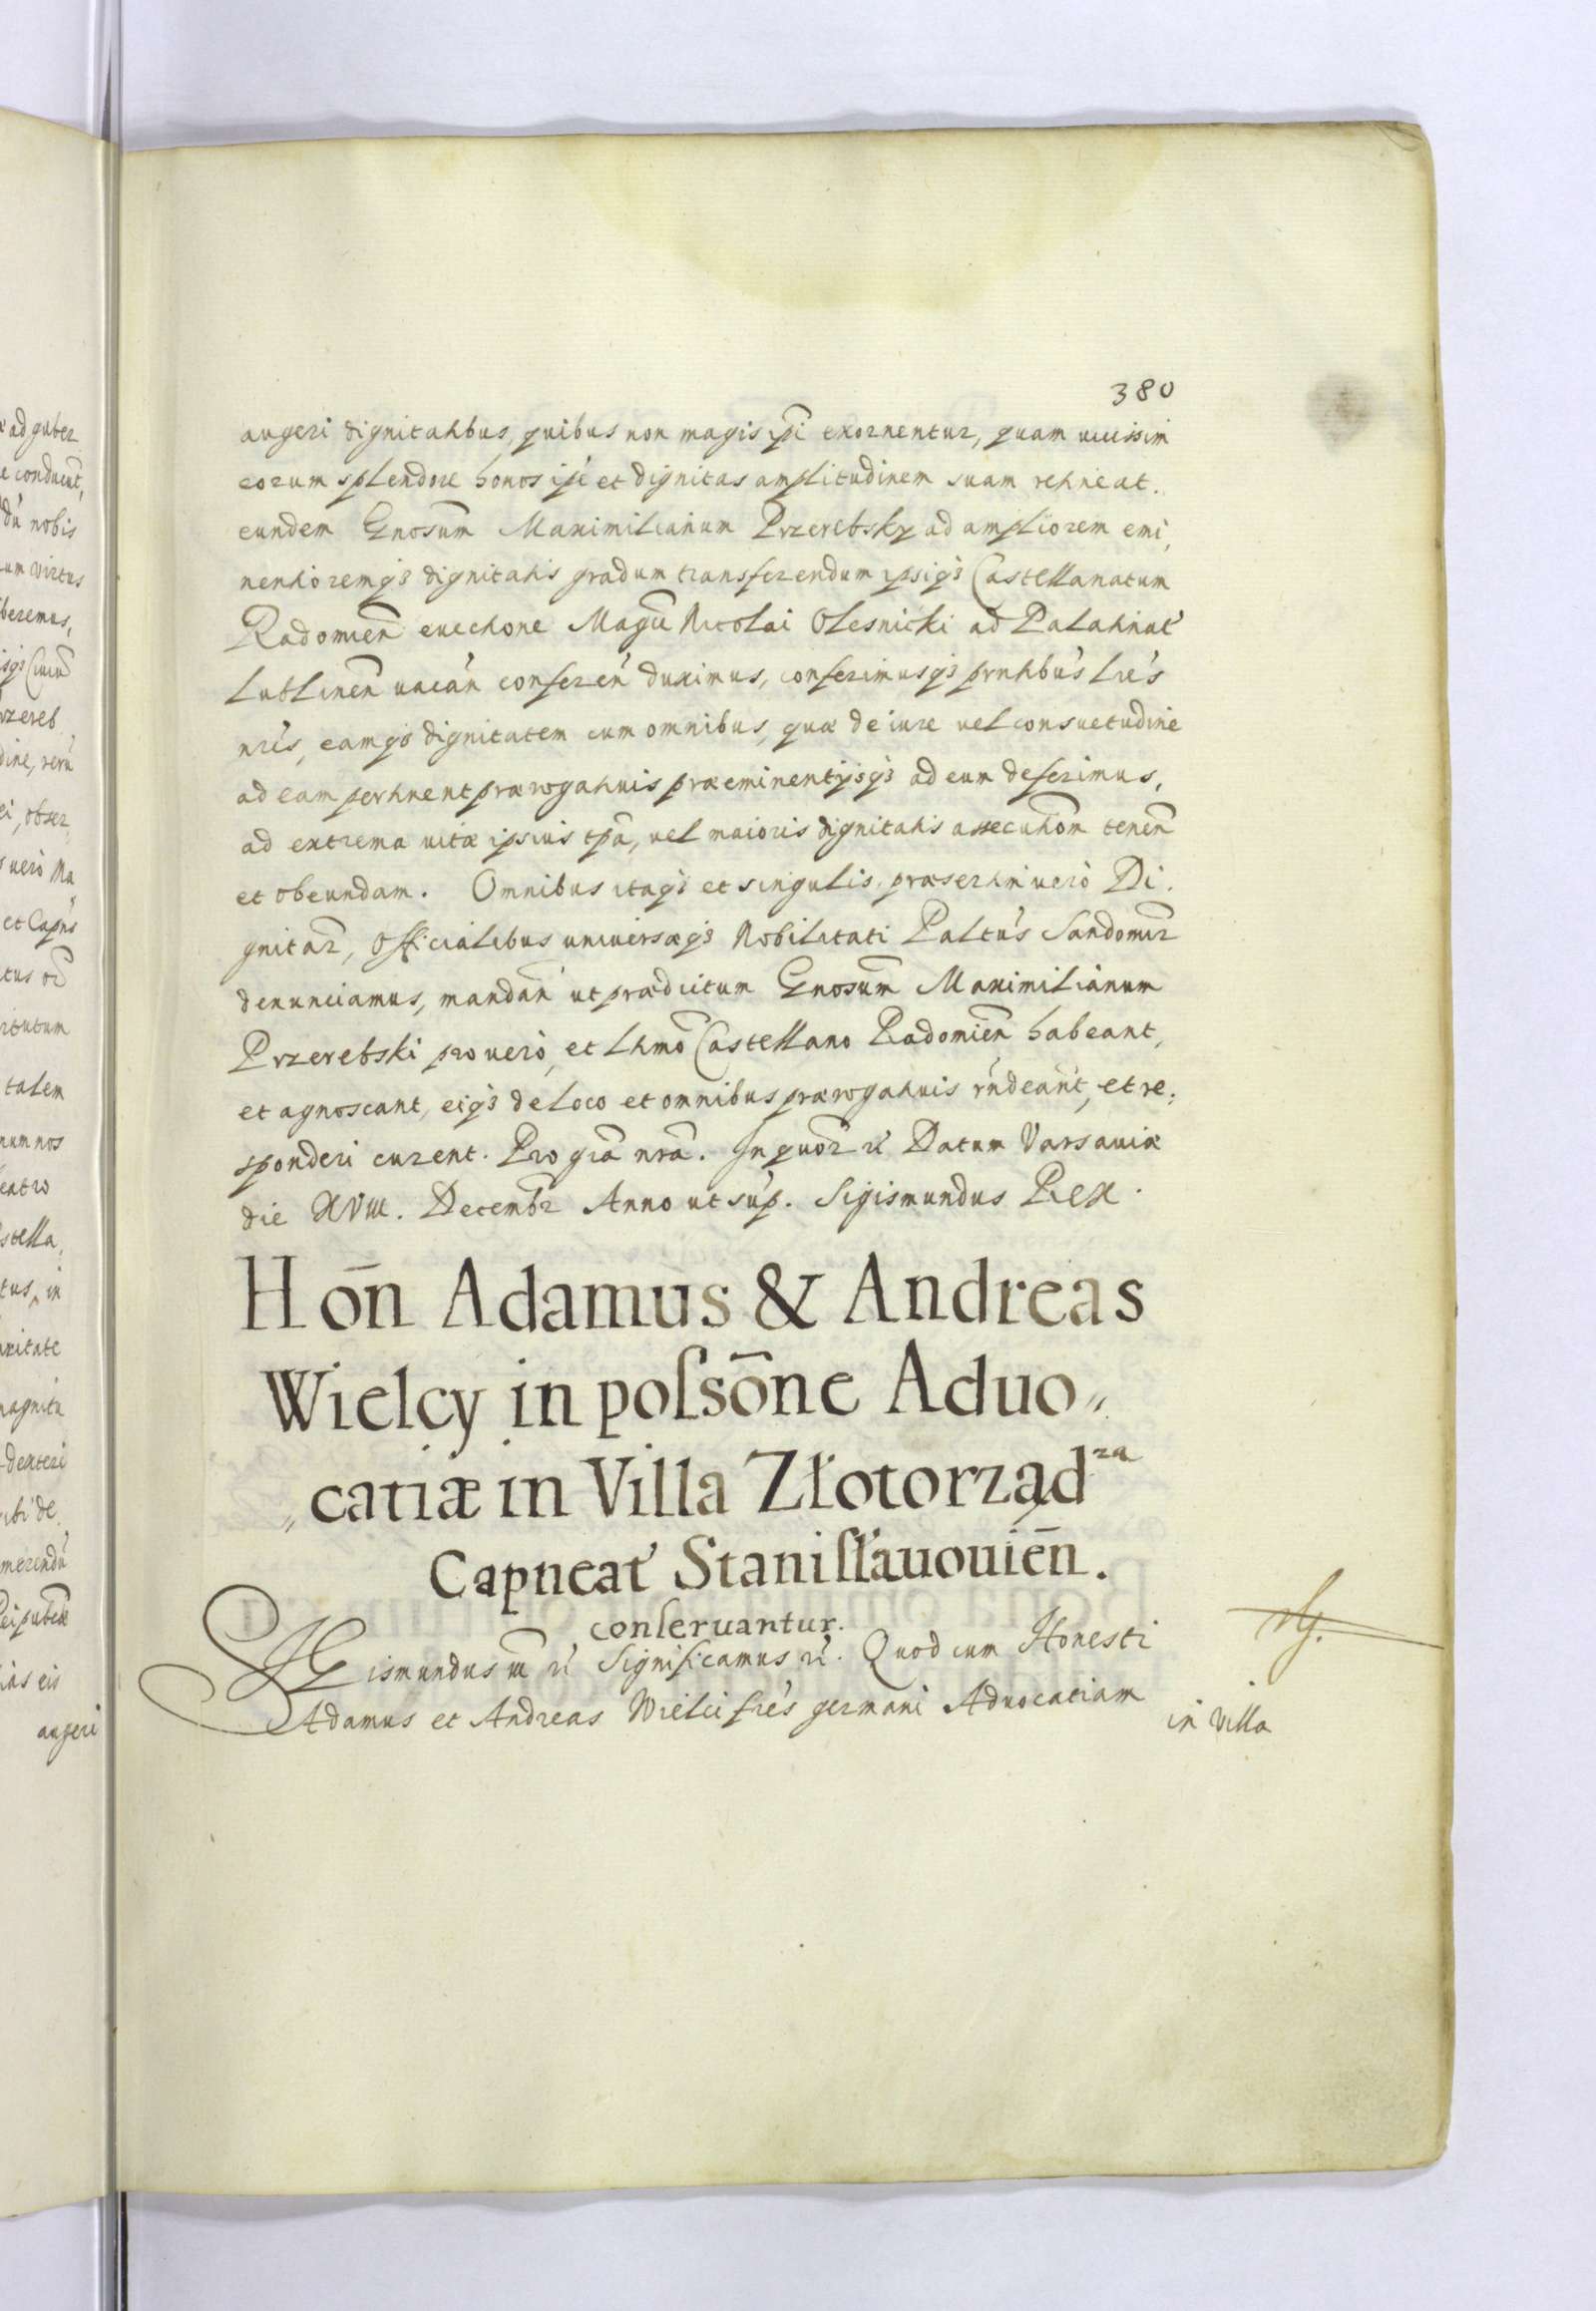 380
augeri dignitatibus, quibus non magis ipsi exornentur, quam uicissim
eorum splendore honos ipse et dignitas amplitudinem suam retineat.
eundem Gnosum Maximilianum Przerebsky ad ampliorem emi,
nentioremq3 dignitatis gradum transferendum ipsiq3 Castellanatum
Radomien euectione Magci Nicolai Olesnicki ad Palatinat
Lublinen uacan conferen duximus, conferimusq3 pntibus Lris
nris, eamq3 dignitatem cum omnibus, quæ de iure uel consuetudine
ad eam pertinent prærogatiuis præeminentijsq3 ad eum deferimus,
ad extrema uitæ ipsius tpa, uel maioris dignitatis assecutiom tenen
et obeundam. Omnibus itaq3 et singulis, præsertim uerò Di,
gnitar, Officialibus uniuersæq3 Nobilitati Paltus Sandomir
denunciamus, mandan ut prædictum Gnosum Maximilianum
Przerebski pro uerò, et Ltmo Castellano Radomien habeant,
et agnoscant, eiq3 de loco et omnibus prærogatiuis rndeant, et re,
sponderi curent. Pro gra nra. In quor ri Datum Varsauiæ
die XVIII. Decembr Anno ut sup. Sigismundus Rex.
Hon̄ Adamus & Andreas
Wielcy in poſsōne Aduo„
„catiæ in Villa Złotorząd za
Capneat' Stanisłauouien̄.
conſeruantur.
Sigismundus III ri Significamus ri. Quod cum Honesti
Adamus et Andreas Wielci frēs germani Aduocatiam
in Villa
ad guber
conducūt,
dū nobis
um virtus
beremus,
dine, rerū
ei, obser,
uerò Ma
et Capns
itutum
talem
num nos
eatro
stella,
tus, in
magnitu
dexteri
ubi de,
merendū
ias eis
augeri